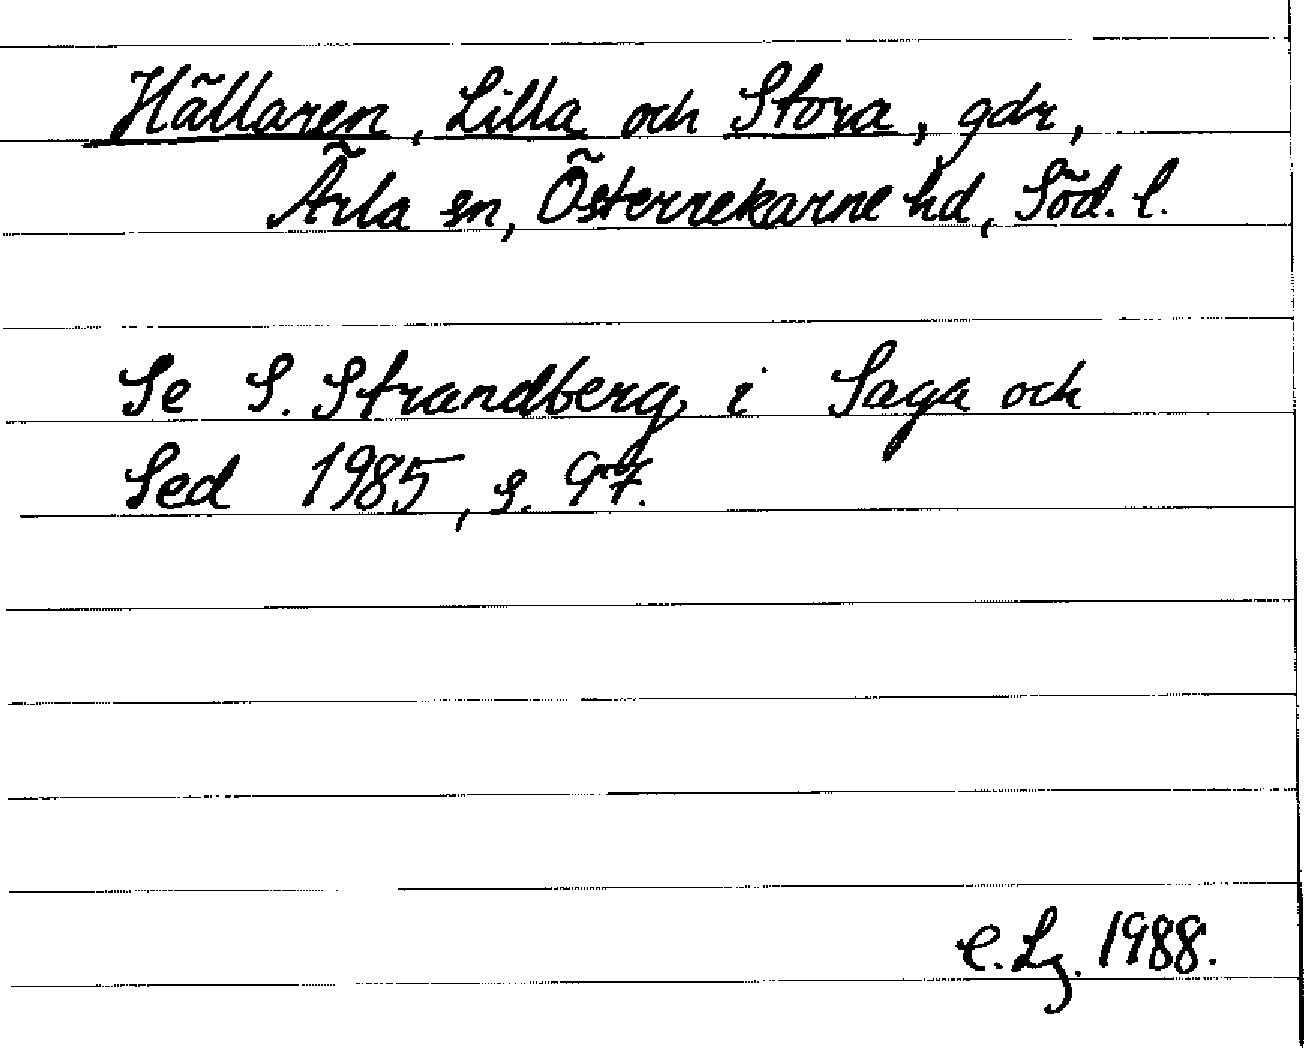 Hällaren, Lilla och Stora, gdr,
Ärla sn, Österrekarne hd, Söd. l.
Se S. Strandberg i Saga och
Sed 1985, s. 97.
C. Lg. 1988.